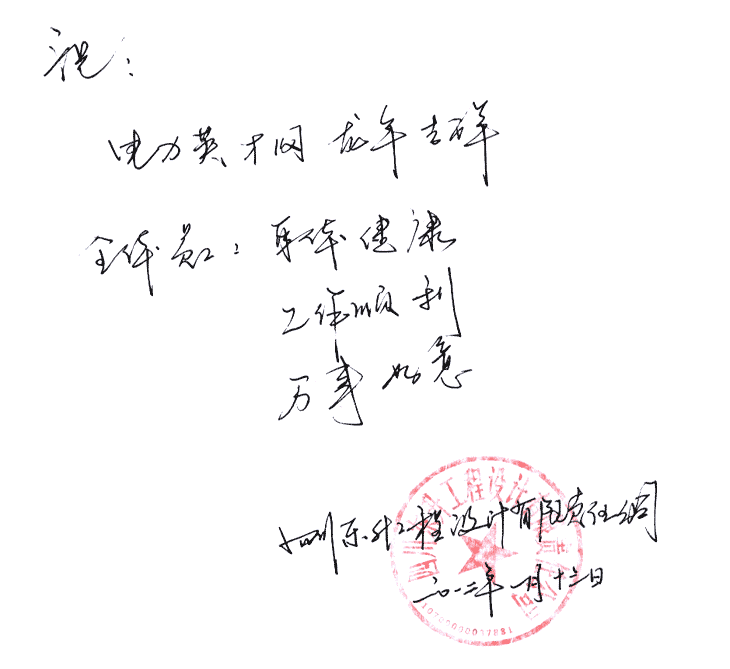 祝：
电力英才网 龙年吉祥
全体员工：身体健康
工作顺利
万事如意
四川东升工程设计有限责任公司
二〇一二年一月十三日